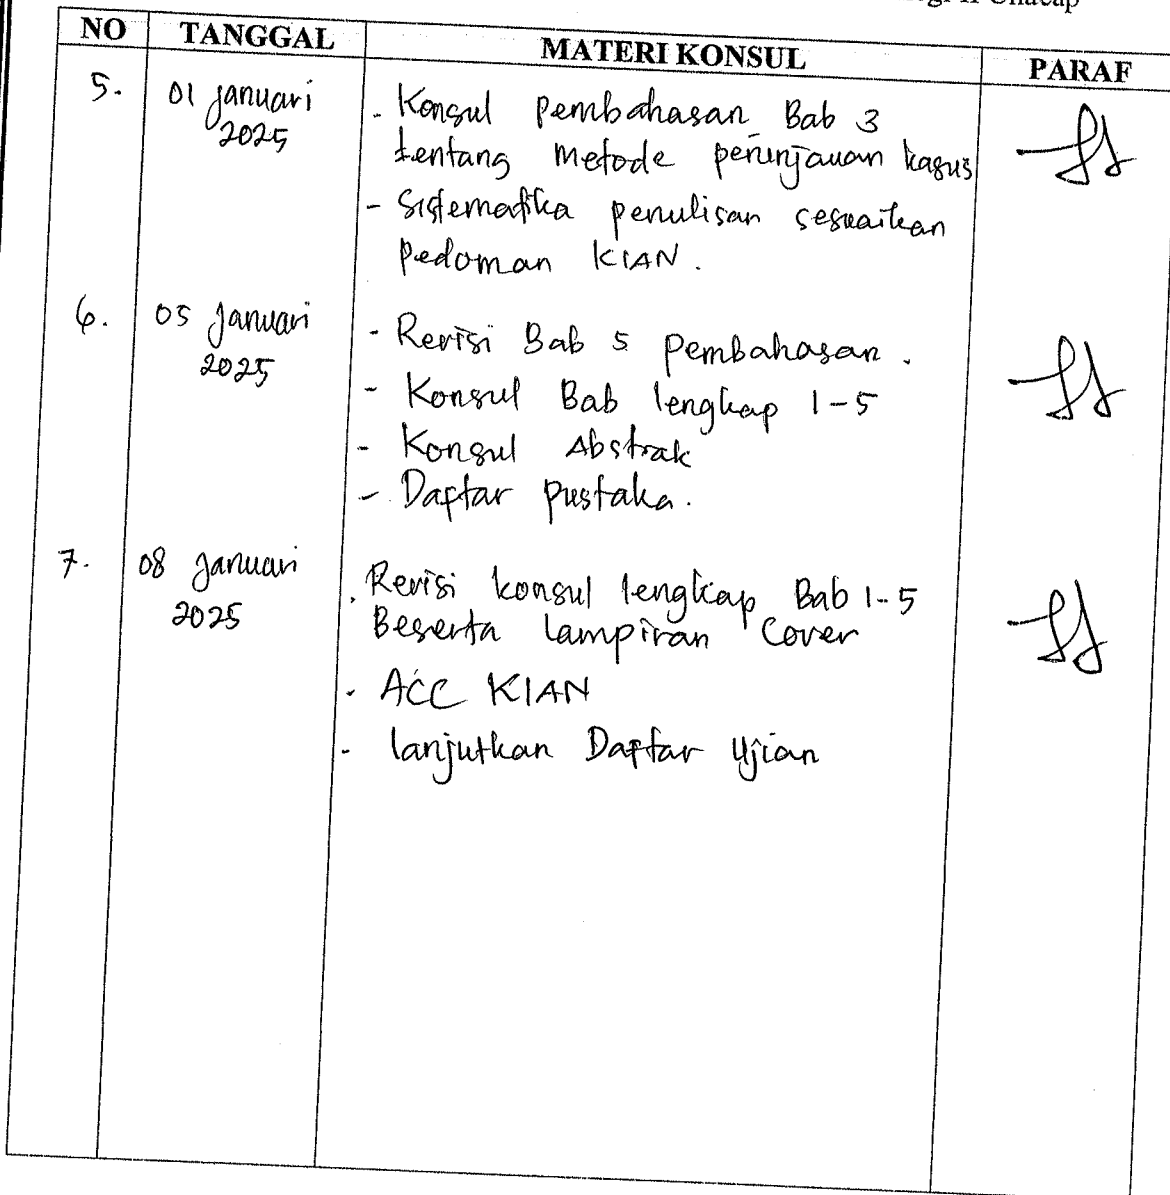 Cilacap
NO TANGGAL MATERI KONSUL PARAF
5. 01 Januari - Konsul pembahasan Bab 3
2025 tentang Metode peninjauan kasus
- Sistematika penulisan sesuaikan
pedoman KIAN.
6. 05 Januari - Revisi Bab 5 pembahasan.
2025
- Konsul Bab lengkap 1-5
- Konsul Abstrak
- Daftar pustaka.
7. 08 Januari . Revisi konsul lengkap Bab 1-5
2025 Beserta lampiran cover
- ACC KIAN
- lanjutkan Daftar Ujian